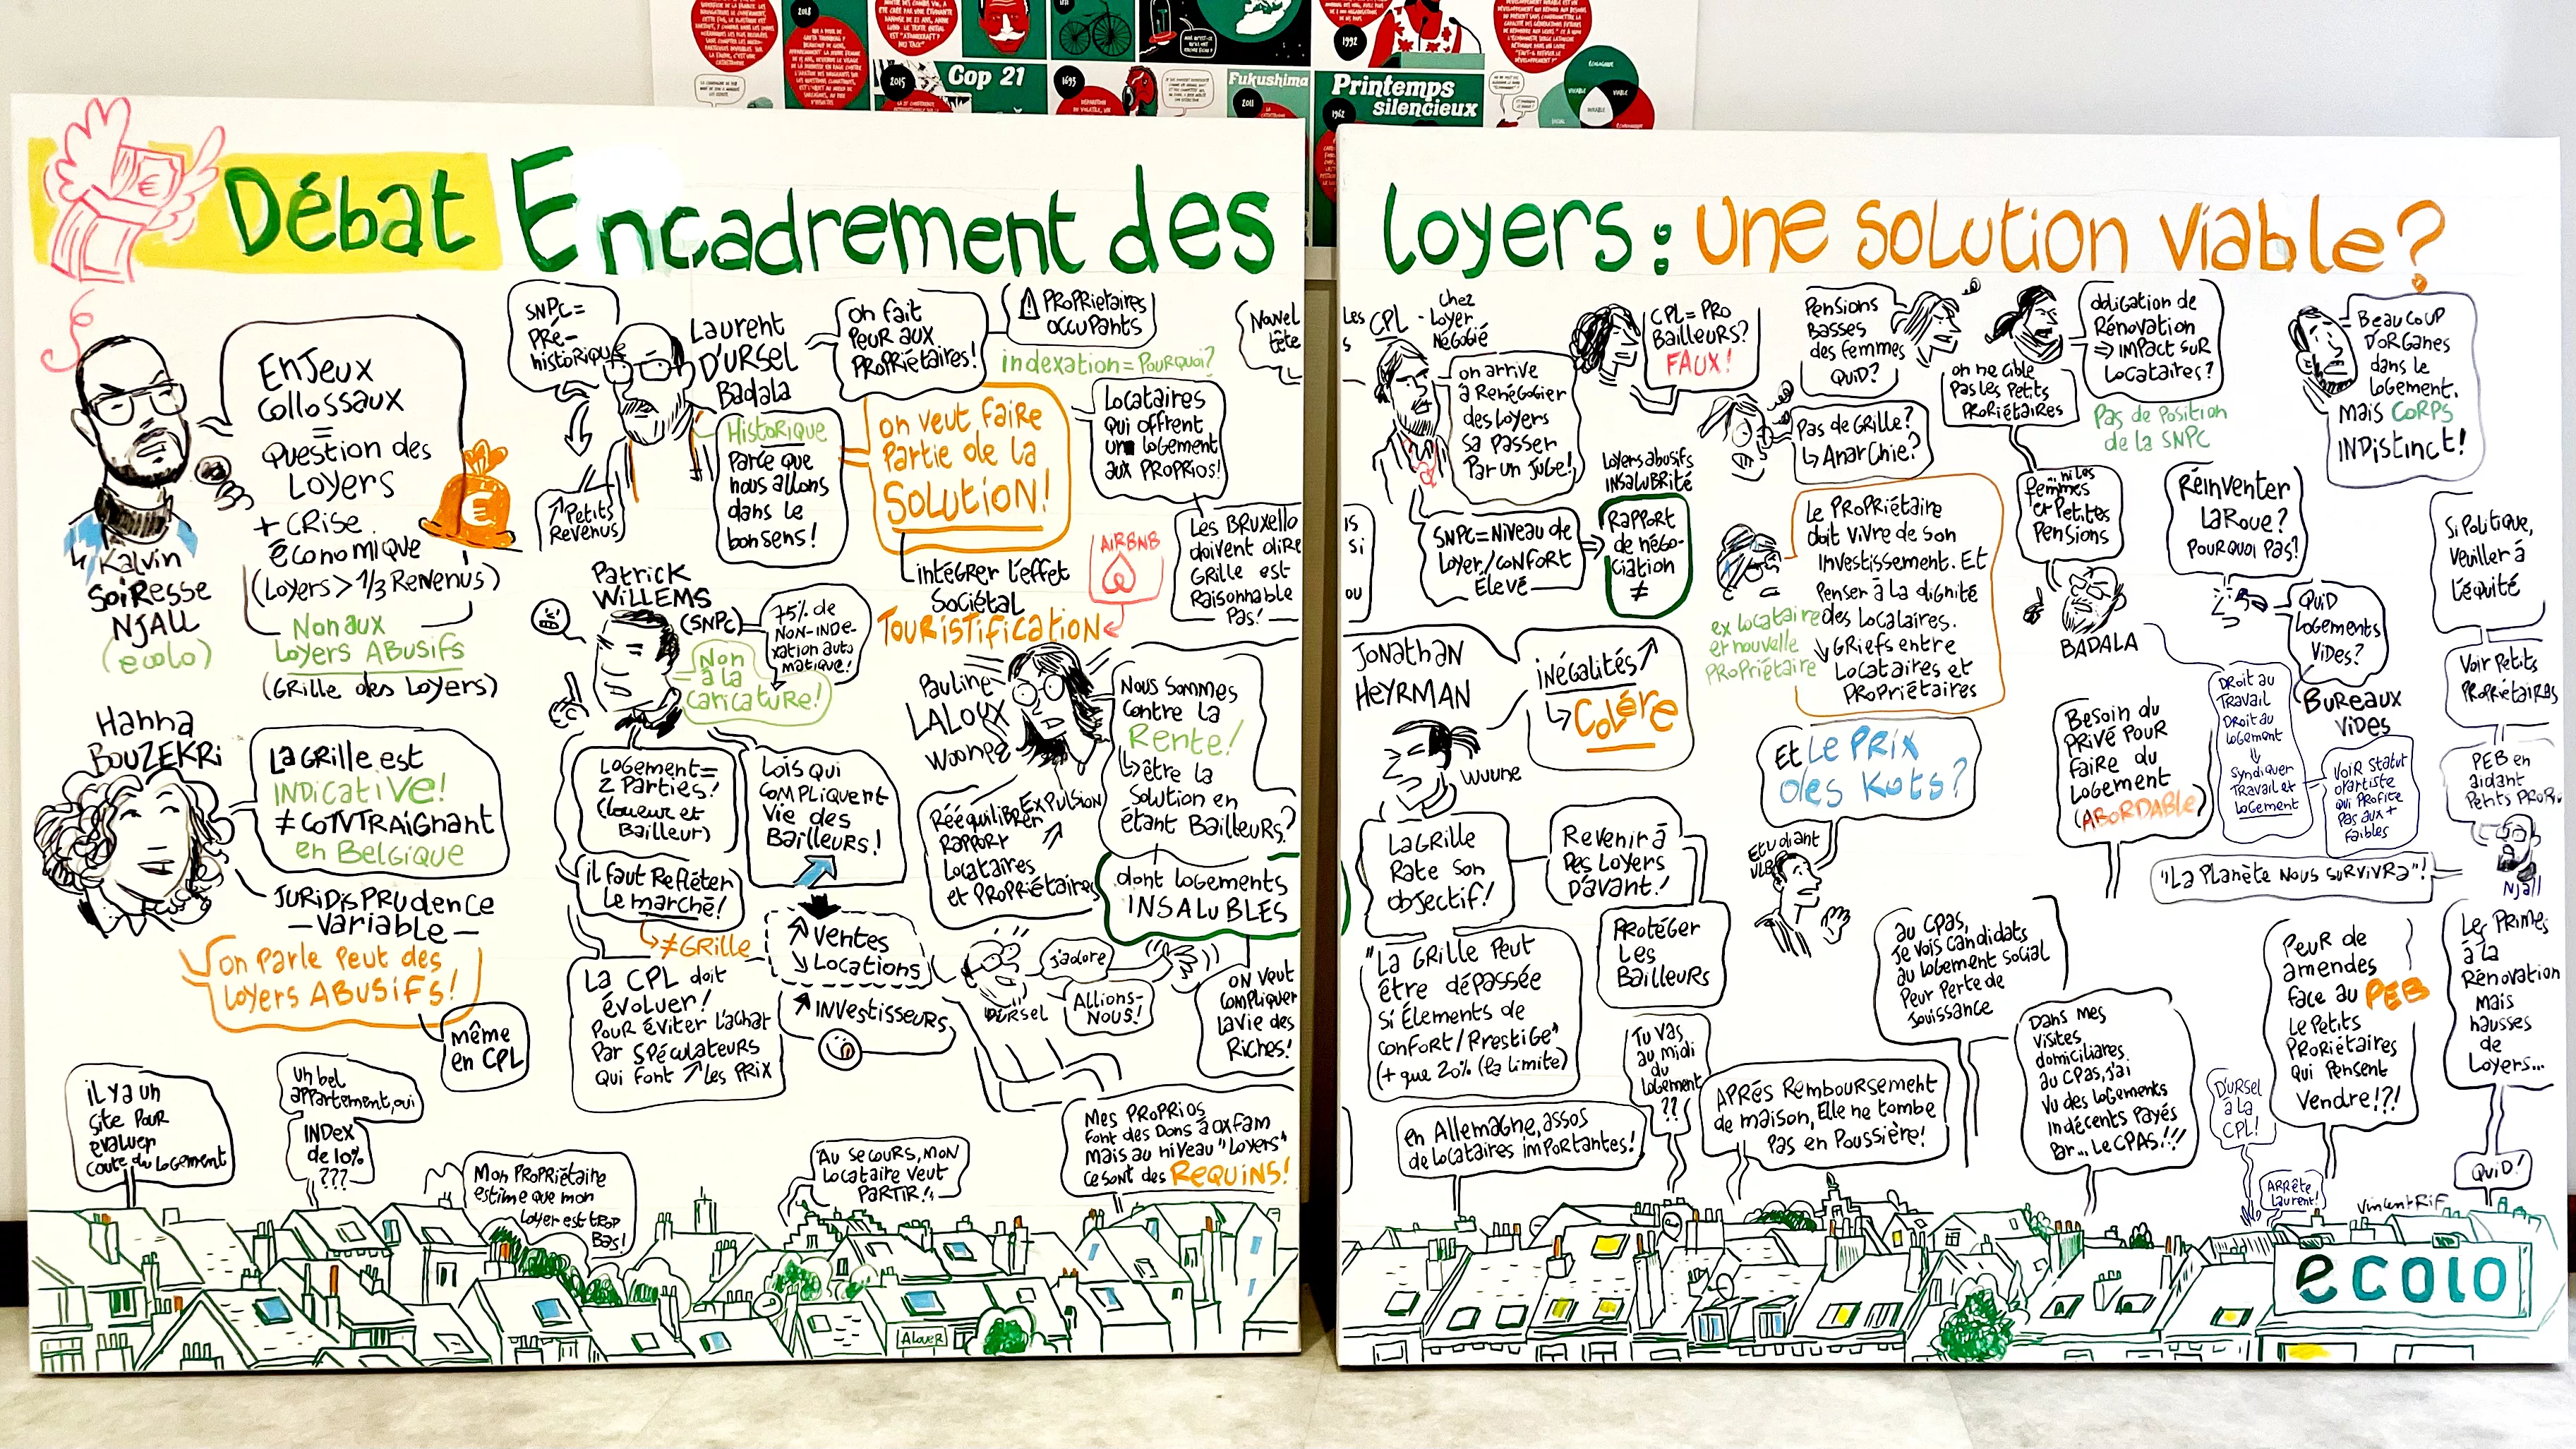 Cop 21
2015
1695
Fukushima
2011
Printemps
silencieux
1962
1992
2018
Débat Encadrement des
Loyers : une solution viable ?
Enjeux
Collossaux
=
Question des
Loyers
+ Crise
économique
(Loyers > 1/3 Revenus)
Non aux
Loyers ABUSIFS
(Grille des Loyers)
Kalvin
Soiresse
Njall
(ecolo)
Hanna
Bouzekri
La Grille est
INDicative!
≠ CONTRAignant
en Belgique
Jurisprudence
- Variable -
on parle peut des
Loyers ABUSIFS!
même
en CPL
il y a un
site pour
évaluer
coute du logement
un bel
appartement, oui
INDex
de 10%
???
Mon Propriétaire
estime que mon
Loyer est trop
Bas!
SNPC =
Pré-
historique
↗ Petits
Revenus
Laurent
D'URSEL
Badala
Historique
Parce que
nous allons
dans le
bon sens!
on fait
peur aux
Propriétaires!
⚠ Proprietaires
occupants
indexation = Pourquoi?
on veut faire
partie de la
Solution!
intégrer l'effet
Sociétal
Touristification
AIRBNB
Locataires
qui offrent
un logement
aux Proprios!
Les Bruxello
doivent dire
Grille est
Raisonnable
Pas!
Nouvel
tête
Patrick
Willems
(SNPC)
75% de
Non-inde-
xation auto
matique!
Non
à la
caricature!
Logement =
2 Parties!
(Loueur et
Bailleur)
Lois qui
compliquent
vie des
Bailleurs!
il faut Refléter
Le marché!
↳ ≠ Grille
La CPL doit
évoluer!
Pour éviter l'achat
Par spéculateurs
qui font ↗ les prix
↗ Ventes
↘ Locations
↗ Investisseurs
Pauline
LALOUX
Woonez
Nous sommes
contre la
Rente!
↳ être la
solution en
étant Bailleurs?
dont logements
INSALUBLES
Rééquilibrer
Rapport
Locataires
et Propriétaires
Expulsion
↗
D'URSEL
J'adore
Allions-
nous!
on veut
compliquer
la vie des
Riches!
Au secours, mon
locataire veut
PARTIR!
Mes Proprios
font des Dons à Oxfam
mais au niveau "Loyers"
ce sont des Requins!
A Louer
Les
s
CPL
- chez
Loyer
Négocié
on arrive
à Renégocier
des Loyers
sa passer
Par un Juge!
is
si
ou
SNPC = Niveau de
Loyer/confort
Élevé
Loyers abusifs
INSALUBRITÉ
RAPPORT
de négo-
ciation
≠
CPL = Pro
Bailleurs?
FAUX!
Pensions
Basses
des femmes
QUID?
Pas de Grille?
↳ Anarchie?
on ne cible
pas les Petits
Propriétaires
obligation de
Rénovation
⇒ impact sur
Locataires?
Pas de Position
de la SNPC
Beaucoup
D'ORGanes
dans le
logement.
mais CORPS
INDistinct!
Le Propriétaire
doit vivre de son
Investissement. Et
Penser à la dignité
des Locataires.
↘ Griefs entre
Locataires et
Propriétaires
ex locataire
et nouvelle
Propriétaire
... ni les
femmes
et Petites
Pensions
BADALA
Réinventer
La Roue?
Pourquoi pas?
QUID
Logements
Vides?
Bureaux
Vides
Si Politique,
Veiller à
l'équité
Voir Petits
Propriétaires
PEB en
aidant
Petits Propri
Njall
"La Planète nous survivra"!
Jonathan
Heyrman
Wuune
inégalités ↗
↳ Colère
La Grille
Rate son
objectif!
Revenir à
des Loyers
D'avant!
Protéger
les
Bailleurs
"La Grille peut
être dépassée
si Élements de
confort/Prestige"
(+ que 20% (la limite)
Et Le PRIX
des Kots?
Etudiant
ULB
Besoin du
privé pour
faire du
Logement
(ABORDABLE)
Droit au
Travail
Droit au
Logement
⇓
Syndiquer
Travail et
Logement
Voir statut
d'artiste
qui profite
pas aux +
faibles
au CPAS,
Je vois candidats
au logement social
Peur Perte de
Jouissance
Tu vas,
au midi
du
logement
??
en Allemagne, assos
de locataires importantes!
APRÉS Remboursement
de maison, Elle ne tombe
Pas en Poussière!
Dans mes
visites
domiciliares
au CPAS, j'ai
vu des logements
indécents payés
Par... Le CPAS!!!
D'URSEL
à la
CPL!
Arrête
Laurent!
Peur de
amendes
face au PEB
Le Petits
Proriétaires
qui pensent
Vendre!?!
Les Primes
à la
Rénovation
mais
hausses
de
Loyers...
QUID!
VincentRif
ecolo